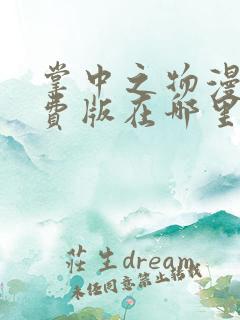 掌中之物漫
费版在哪里
莊生dream
未任同意禁止转载